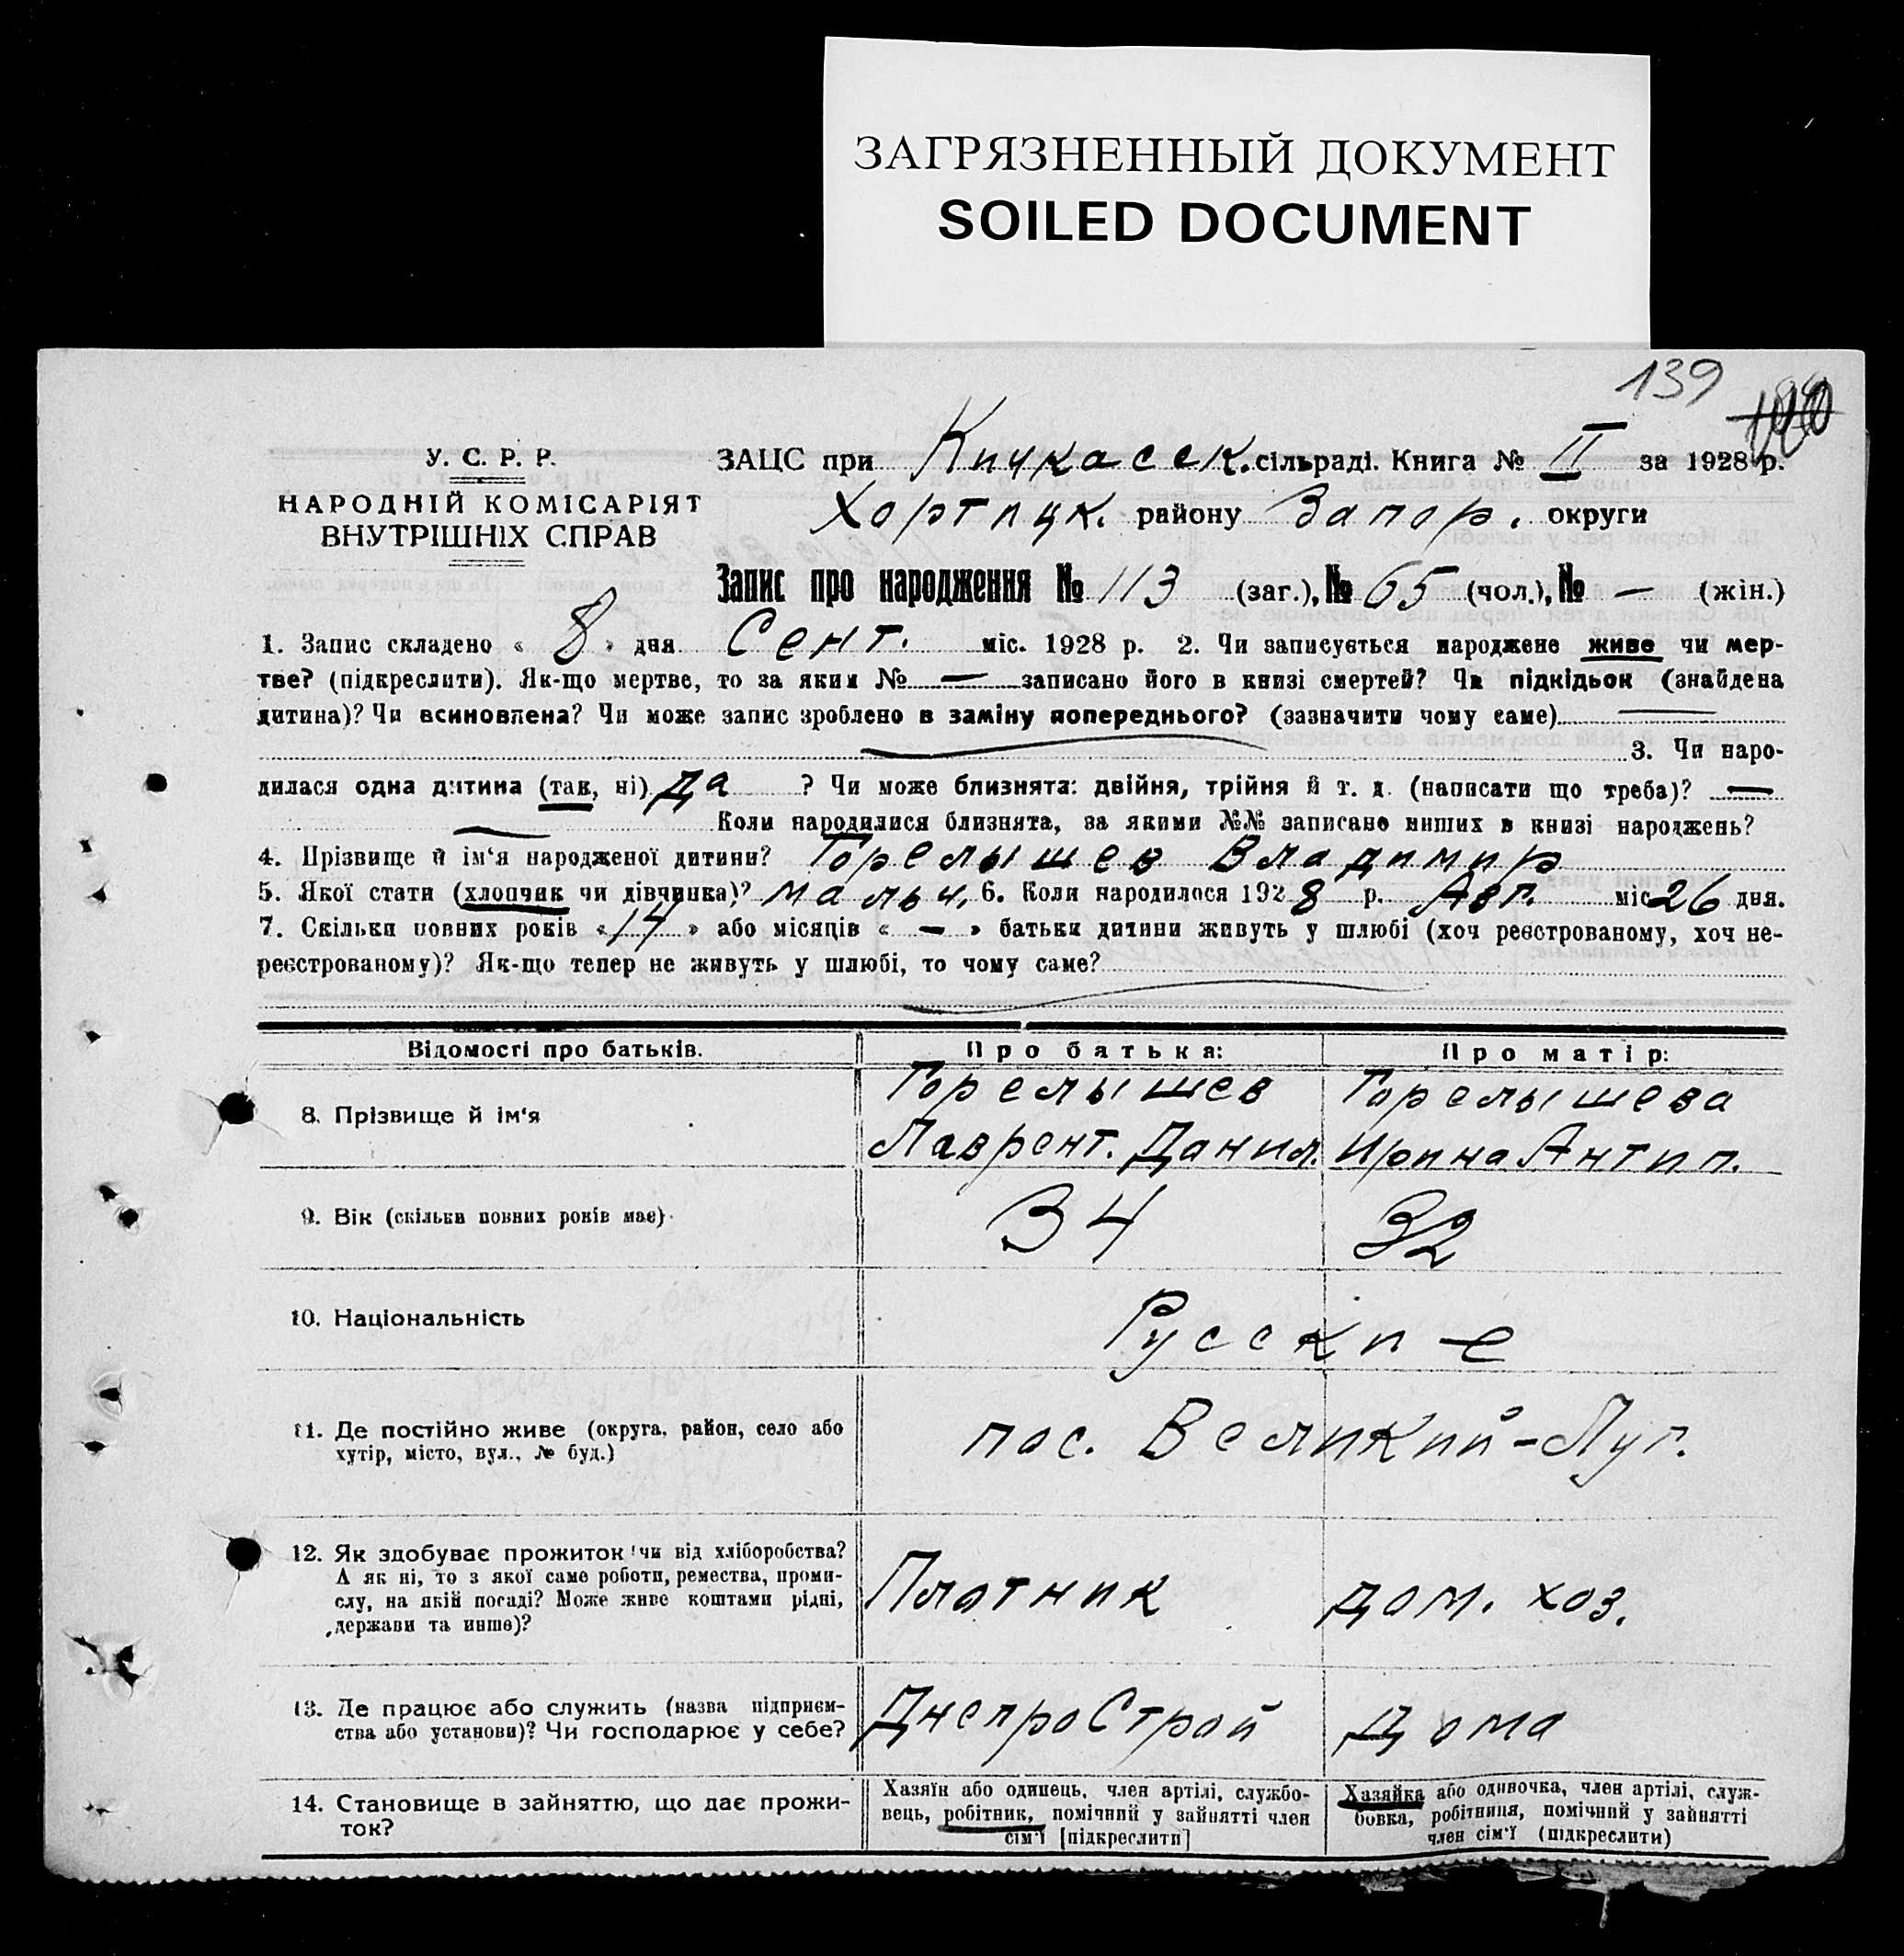 ЗАГРЯЗНЕННЫЙ ДОКУМЕНТ
SOILED DOCUMENT
139
У. С. Р. Р.
НАРОДНІЙ КОМІСАРІЯТ
ВНУТРІШНІХ СПРАВ
ЗАЦС при Кичкасск. сільраді. Книга № II за 1928 р.
Хортицк. району Запор. округи
Запис про народження № 113 (заг.), № 65 (чол.), № — (жін.)
1. Запис складено « 8 » дня Сент. міс. 1928 р. 2. Чи записується народжене живе чи мер-
тве? (підкреслити). Як-що мертве, то за яким № — записано його в книзі смертей? Чи підкідьок (знайдена
дитина)? Чи всиновлена? Чи може запис зроблено в заміну попереднього? (зазначити чому саме) —
3. Чи наро-
дилася одна дитина (так, ні) Да ? Чи може близнята: двійня, трійня й т. д. (написати що треба)? —
— Коли народилися близнята, за якими №№ записано инших в книзі народжень?
4. Прізвище й ім'я народженої дитини? Горелышев Владимир
5. Якої стати (хлопчик чи дівчинка)? мальч. 6. Коли народилося 1928 р. Авг. міс 26 дня.
7. Скільки повних років « 14 » або місяців « — » батьки дитини живуть у шлюбі (хоч реєстрованому, хоч не-
реєстрованому)? Як-що тепер не живуть у шлюбі, то чому саме?
Відомості про батьків. Про батька: Про матір:
8. Прізвище й ім'я Горелышев Горелышева
Лаврент. Данил. Ирина Антип.
9. Вік (скільки повних років має) 34 32
10. Національність Русские
11. Де постійно живе (округа, район, село або
хутір, місто, вул., № буд.) пос. Великий-Луг.
12. Як здобуває прожиток чи від хліборобства?
А як ні, то з якої саме роботи, ремества, проми-
слу, на якій посаді? Може живе коштами рідні,
держави та инше)? Плотник дом. хоз.
13. Де працює або служить (назва підприєм-
ства або установи)? Чи господарює у себе? ДнепроСтрой Дома
14. Становище в зайняттю, що дає прожи-
ток?
Хазяїн або одинець, член артілі, службо-
вець, робітник, помічний у зайнятті член
сім'ї [підкреслити]
Хазяйка або одиночка, член артілі, служ-
бовка, робітниця, помічний у зайнятті
член сім'ї (підкреслити)